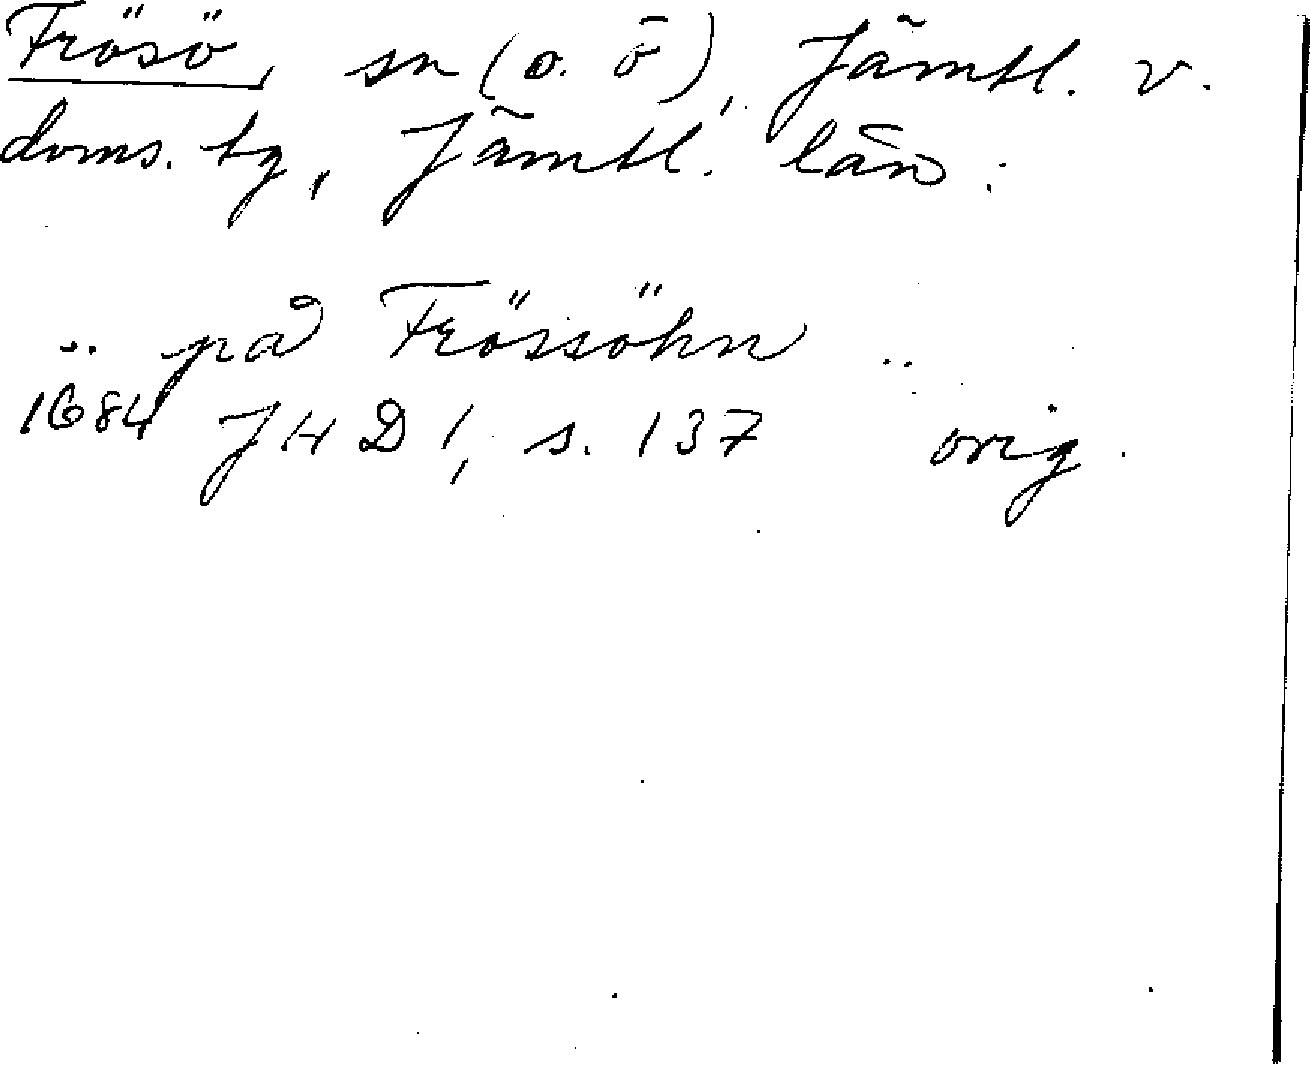 Frösö, sn (o. ö), Jämtl. v.
doms. tg, Jämtl. län.
.. på Frössöhn ..
1684 JHD 1, s. 137 orig.